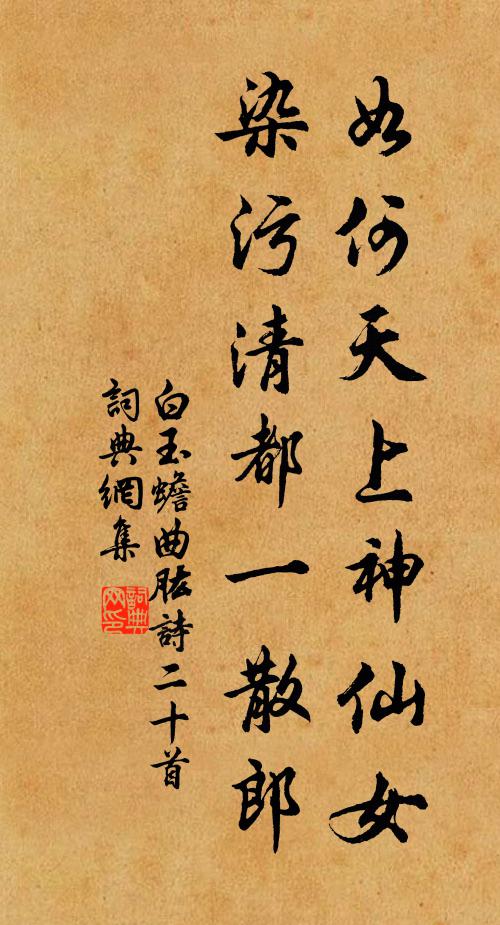 如何天上神仙女
染污清都一散郎
白玉蟾曲肱詩二十首
詞典網集
詞典网印